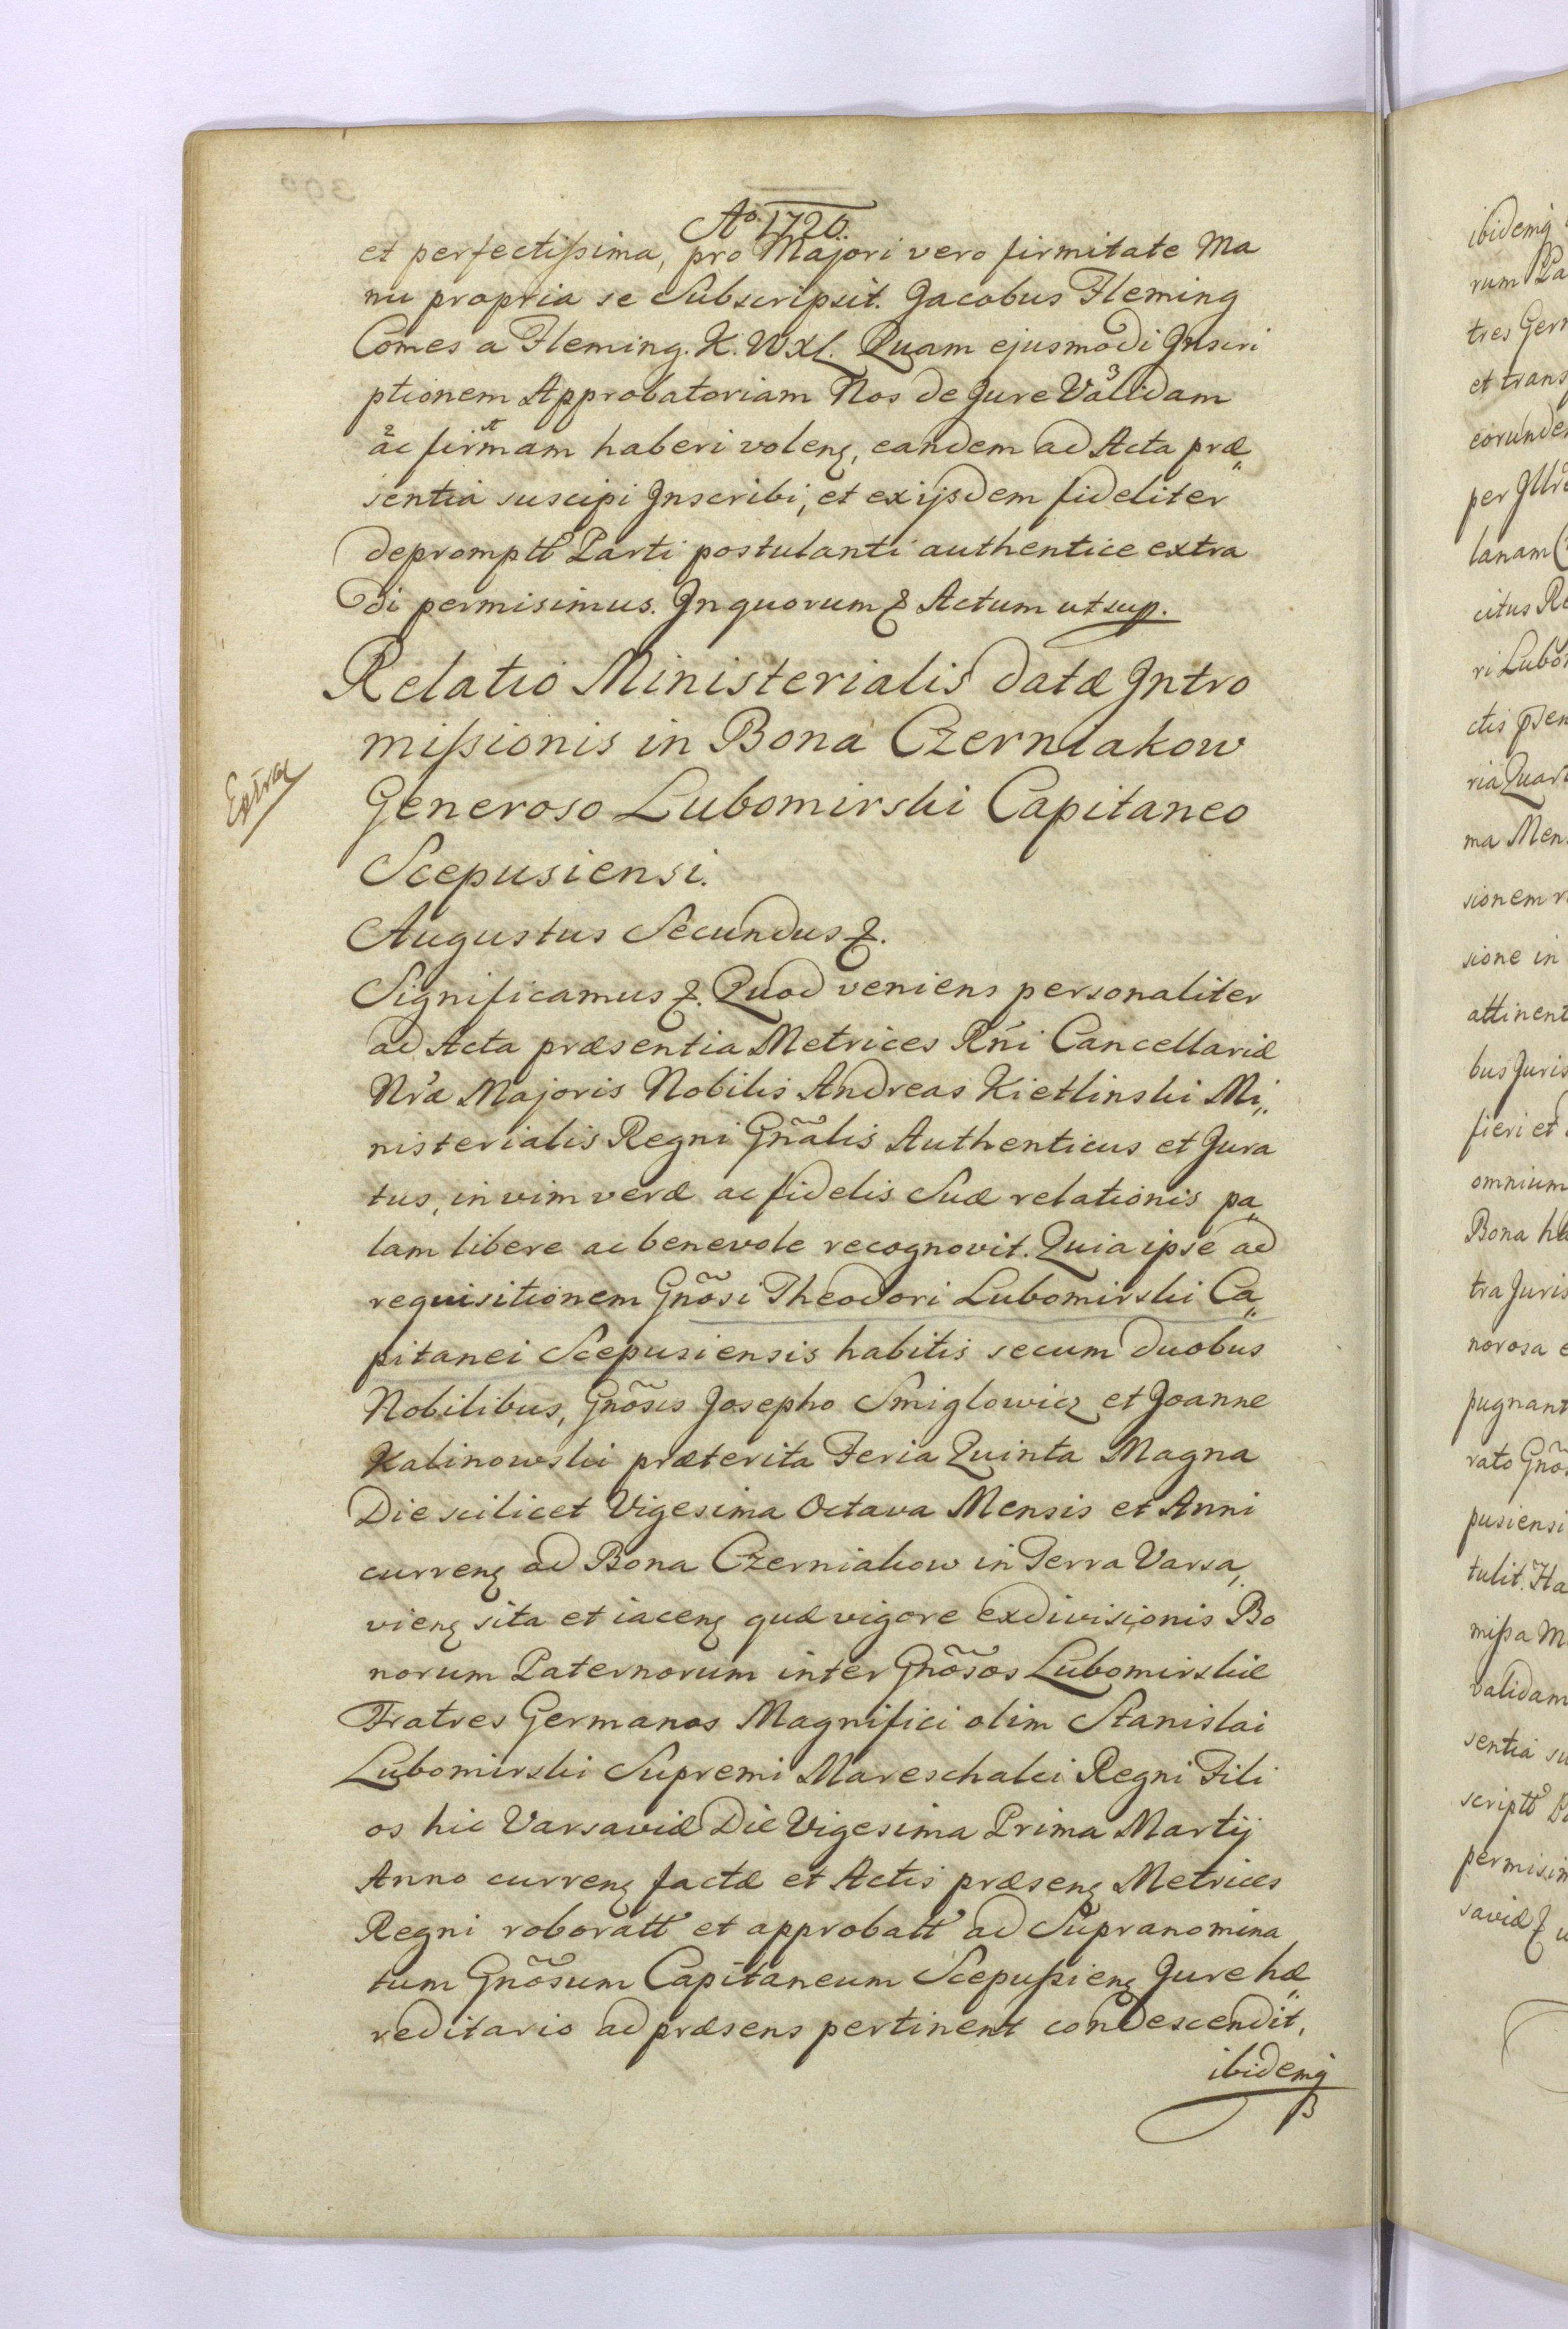 Aº 1720.
et perfectißima, pro Majori vero firmitate Ma
nu propria se Subscripsit. Jacobus Fleming
Comes a Fleming. K. WXL. Quam ejusmodi Inscri
ptionem Approbatoriam Nos de Jure Validam
ac firmam haberi volenȩ, eandem ad Acta præ„
sentia suscipi Inscribi, et ex ijsdem fideliter
depromptt Parti postulanti authentice extra
di permisimus. In quorum & Actum ut sup.
Relatio Ministerialis datæ Intro
mißionis in Bona Czerniakow
Generoso Lubomirski Capitaneo
Scepusiensi.
Extra
Augustus Secundus &.
Significamus &. Quod veniens personaliter
ad Acta præsentia Metrices Rñi Cancellariæ
Nr̃æ Majoris Nobilis Andreas Kietlinski Mi„
nisterialis Regni Gñalis Authenticus et Jura
tus, in vim veræ ac fidelis Suæ relationis pa„
lam libere ac benevole recognovit. Quia ipse ad
requisitionem Gñosi Theodori Lubomirski Ca„
pitanei Scepusiensis habitis secum duobus
Nobilibus, Gñosis Josepho Smiglowicz et Joanne
Kalinowski præterita Feria Quinta Magna
Die scilicet Vigesima Octava Mensis et Anni
currenȩ ad Bona Czerniakow in Terra Varsa„
vienȩ sita et iacenȩ quæ vigore exdivisionis Bo
norum Paternorum inter Gñosos Lubomirskie
Fratres Germanos Magnifici olim Stanislai
Lubomirski Supremi Mareschalci Regni Fili
os hic Varsaviæ Die Vigesima Prima Martij
Anno currenȩ factæ et Actis præsenȩ Metrices
Regni roboratt et approbatt ad Supranomina
tum Gñosum Capitaneum Scepußienȩ Jure hæ„
reditario ad præsens pertinent condescendit,
ibidemq́